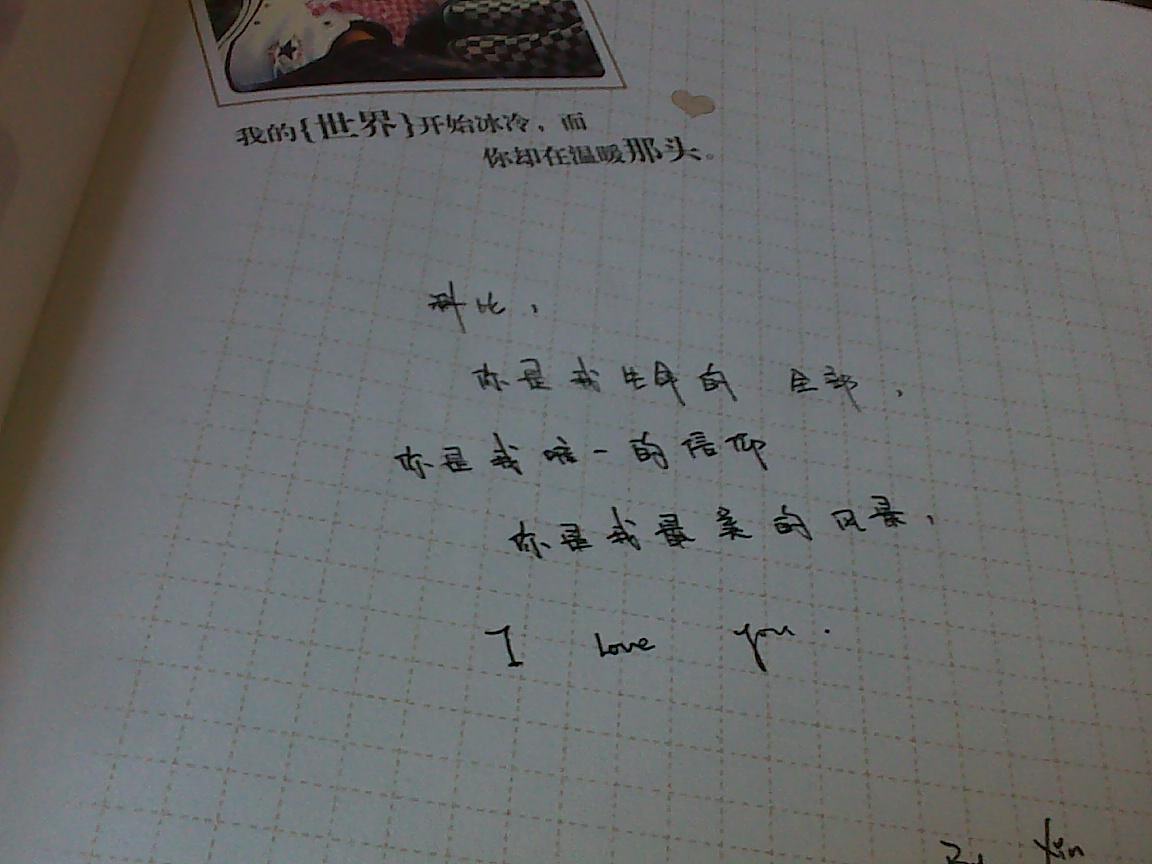 我的{世界}开始冰冷，而
你却在温暖那头。
科比，
你是我生命的 全部，
你是我唯一的信仰
你是我最美的风景，
I love you.
By Xin